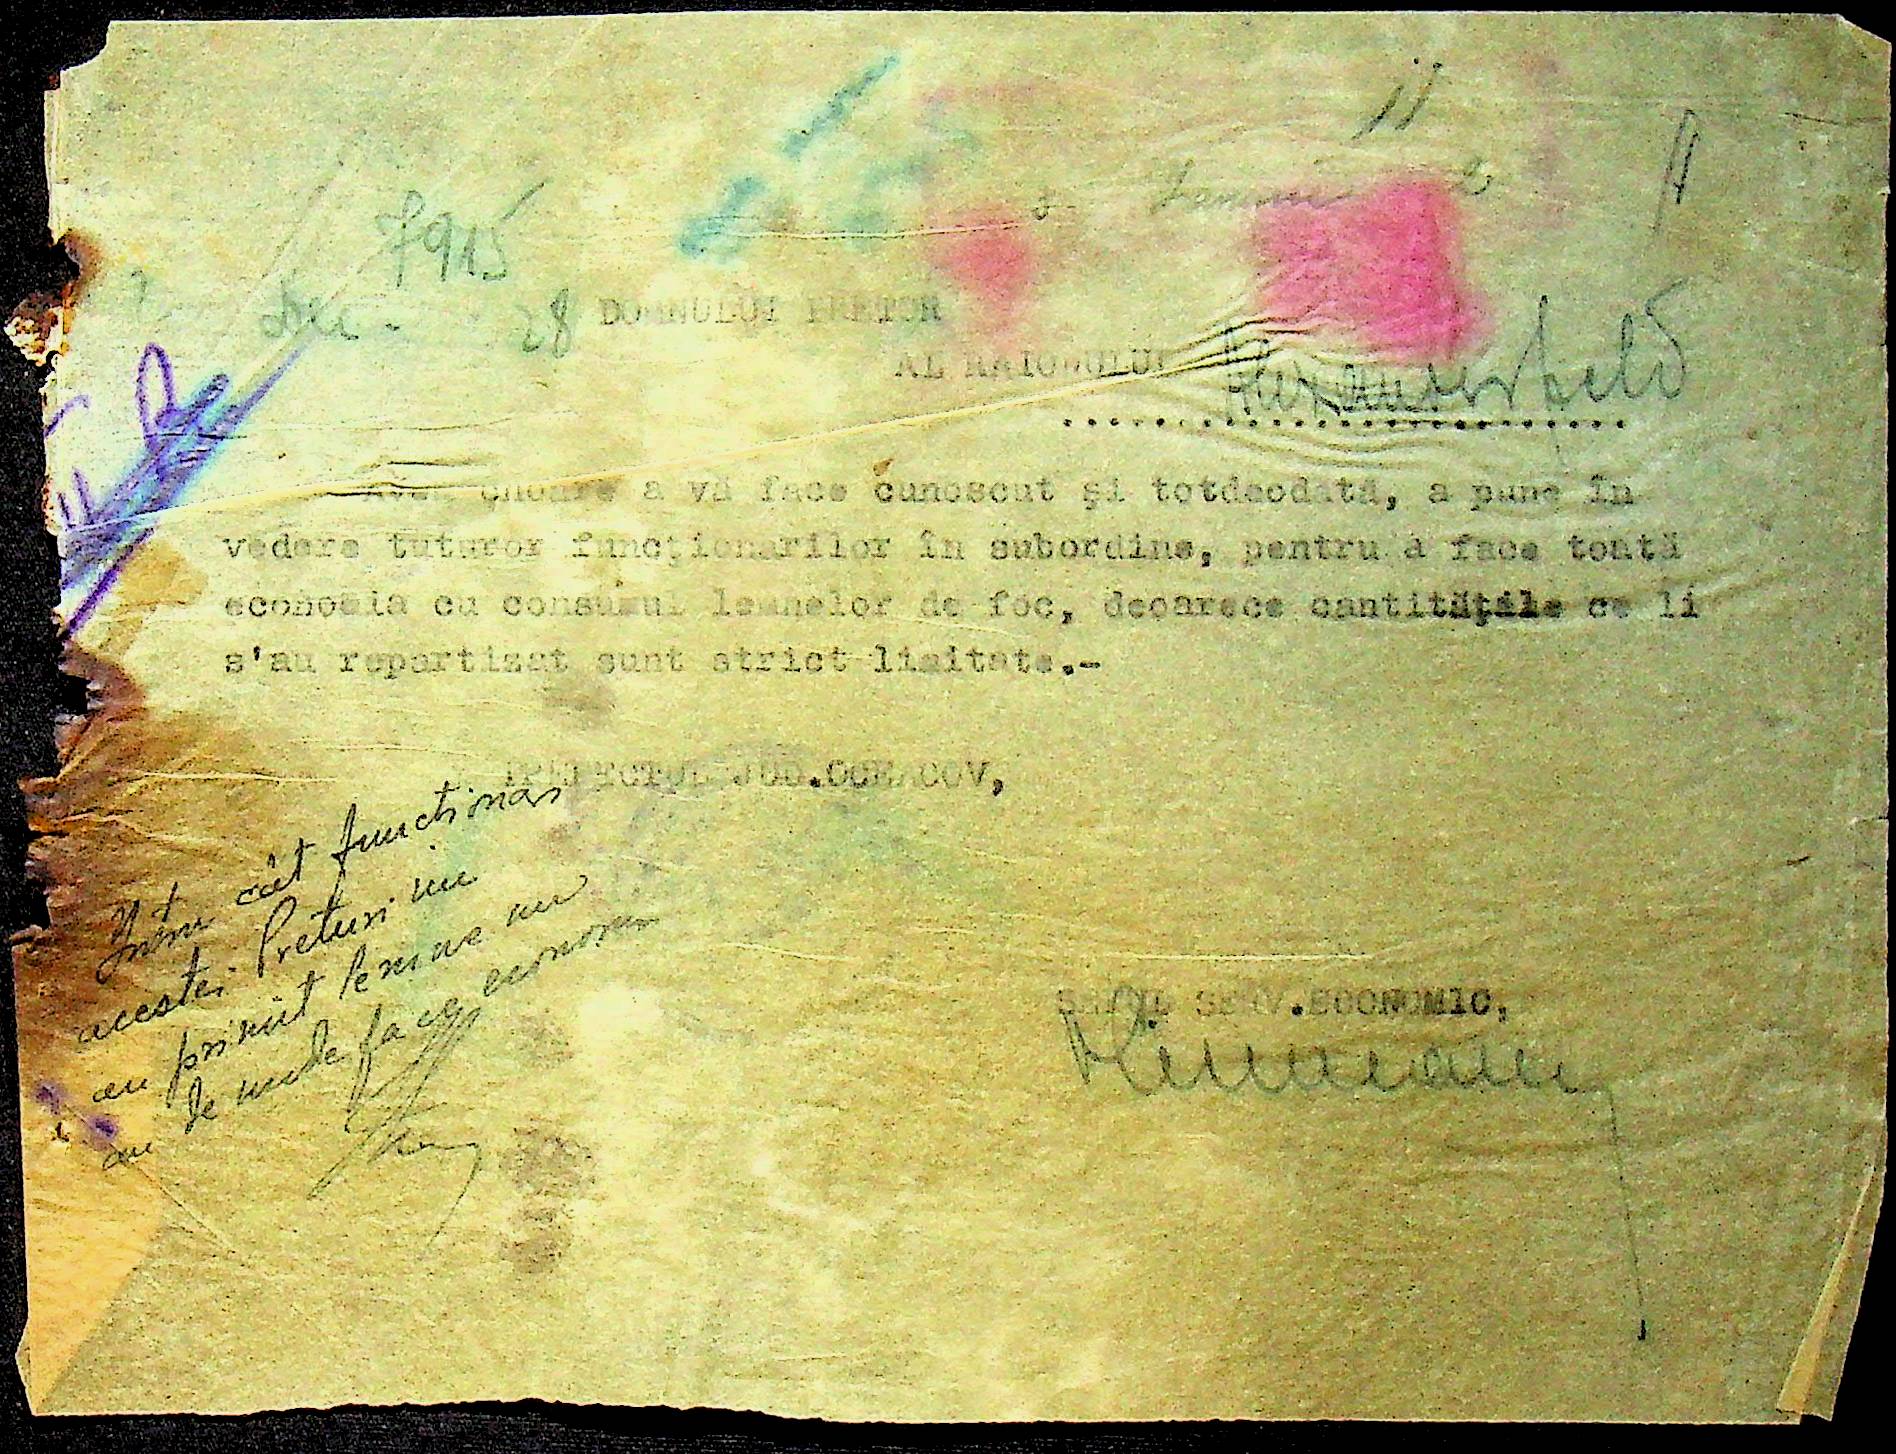 7915
28 DOMNULUI PRETOR
AL RAIONULUI Alexanderfeld
onoare a vă face cunoscut şi totdeodată, a pune în
vedere tuturor funcţionarilor în subordine, pentru a face toată
economia cu consumul lemnelor de foc, deoarece cantităţile ce li
s'au repartizat sunt strict limitate.-
JUD.
Într cât functionari
acestei Preturi nu
au primit lemne nu
au de unde face economii
ŞEFUL SERV.ECONOMIC,